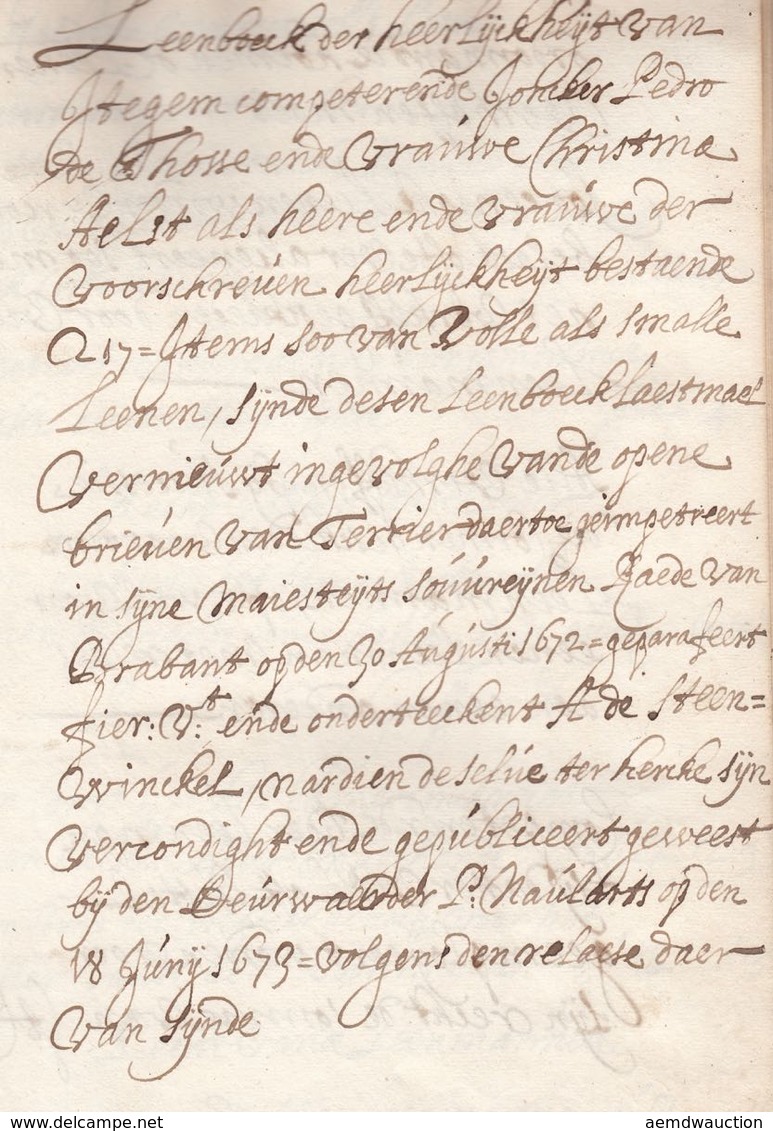 Leenboeck der heerlijckheijt van
Itegem competerende Joncker Pedro
de Thosse ende vrauwe Christina
Aelst als heere ende vrauwe der
voorschreven heerlijckheijt bestaende
217= Items soo van volle als smalle
Leenen, sijnde desen Leenboeck laestmael
vernieuwt ingevolghe vande opene
brieven van Terrier daertoe geimpetreert
in sijne Maiesteijts souvreijnen Raede van
Brabant op den 30 Augusti 1672= geparafeert
fier: V:t ende onderteeckent A de Steen=
winckel, nardien de selve ter kercke sijn
vercondight ende gepubliceert geweest
bij den Deurwaerder P: Naulaerts op den
18 Junij 1673= volgens den relaese daer
van sijnde
www.delcampe.net
aemdwauction